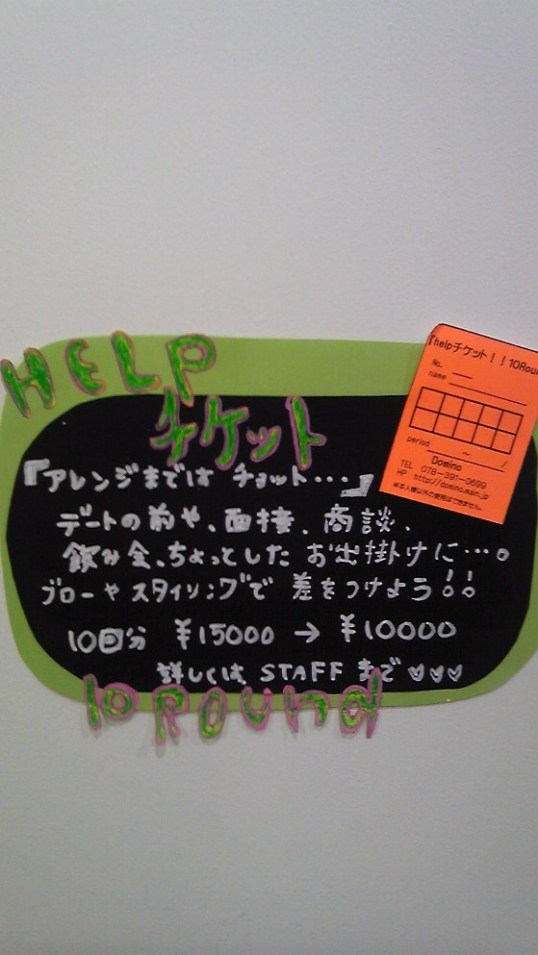 HELP
チケット
『アレンジまでは チョット・・・』
デートの前や、面接、商談、
飲み会、ちょっとした お出掛けに…。
ブローやスタイリングで 差をつけよう!!
10回分 ¥15000 → ¥10000
詳しくは、STAFF まで ♡♡♡
10 ROUND
『helpチケット!!10Roun
No.
name
period ~ /
Domino
TEL 078-391-0699
HP http://domino.main.jp
※本人様以外の使用はできません。